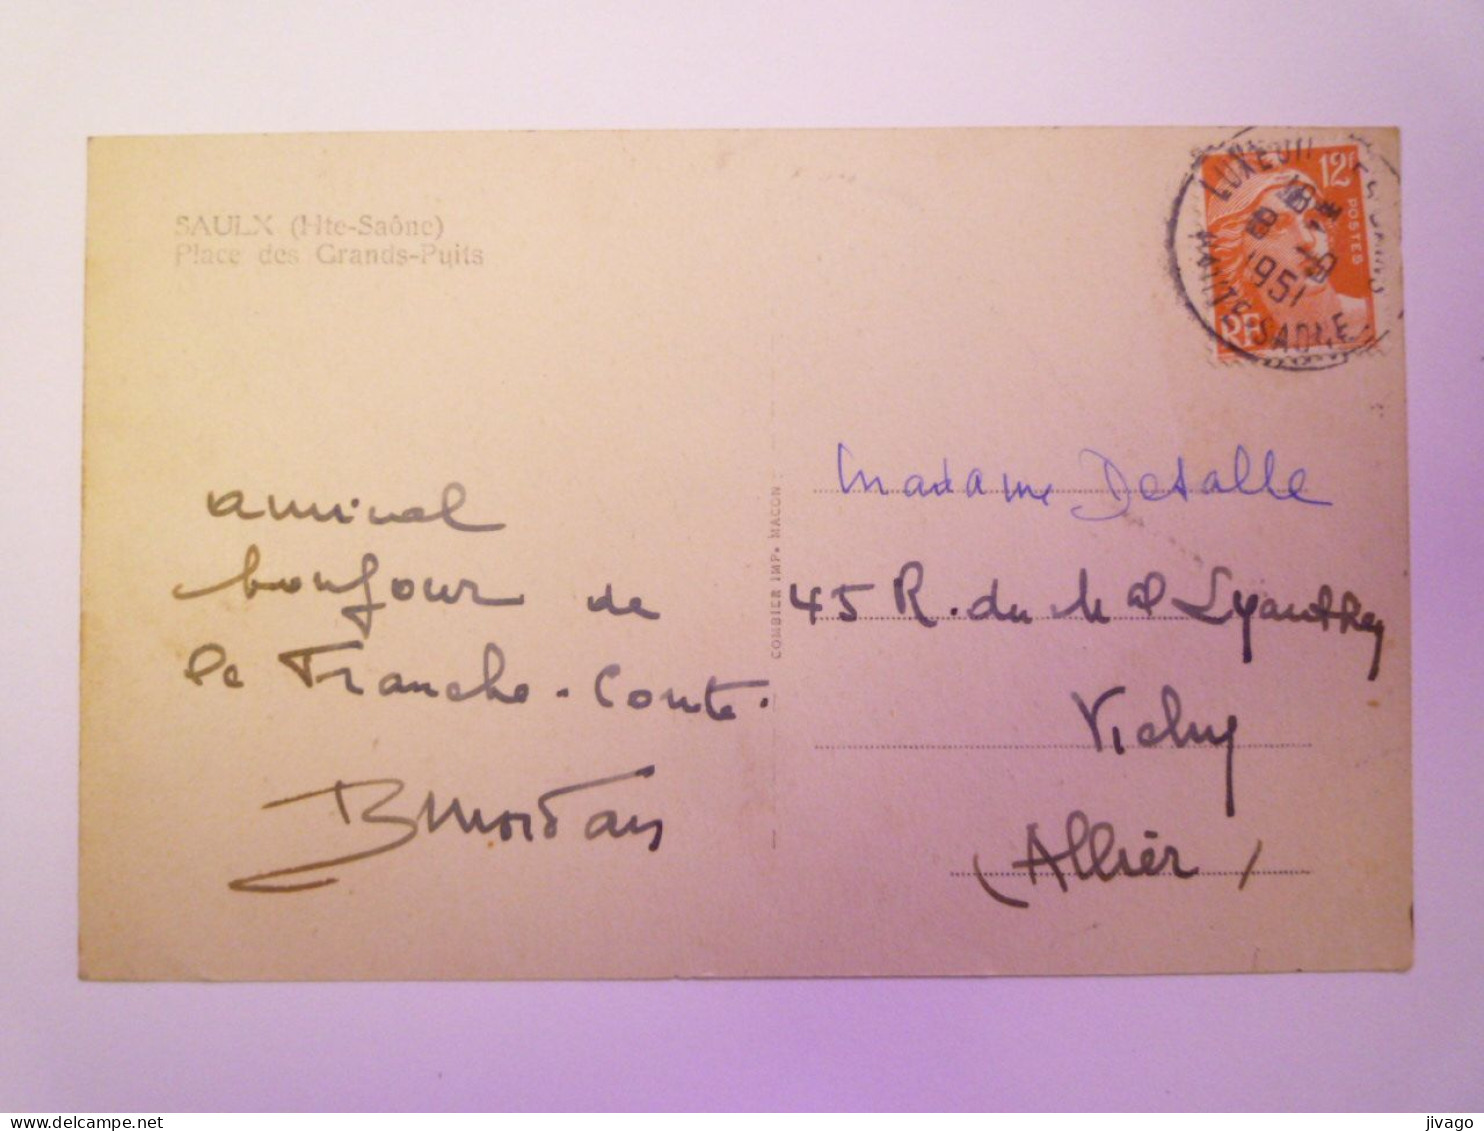 SAULX (Hte-Saône)
Place des Grands-Puits
12F
POSTES
RF
LUXEUIL LES BAINS
18H
1951
HAUTE SAONE
amical
bonjour de
la Franche-Comté.
COMBIER IMP. MACON
Madame Desalle
45 R. du Mal Lyauthey
Vichy
(Allier)
jivago